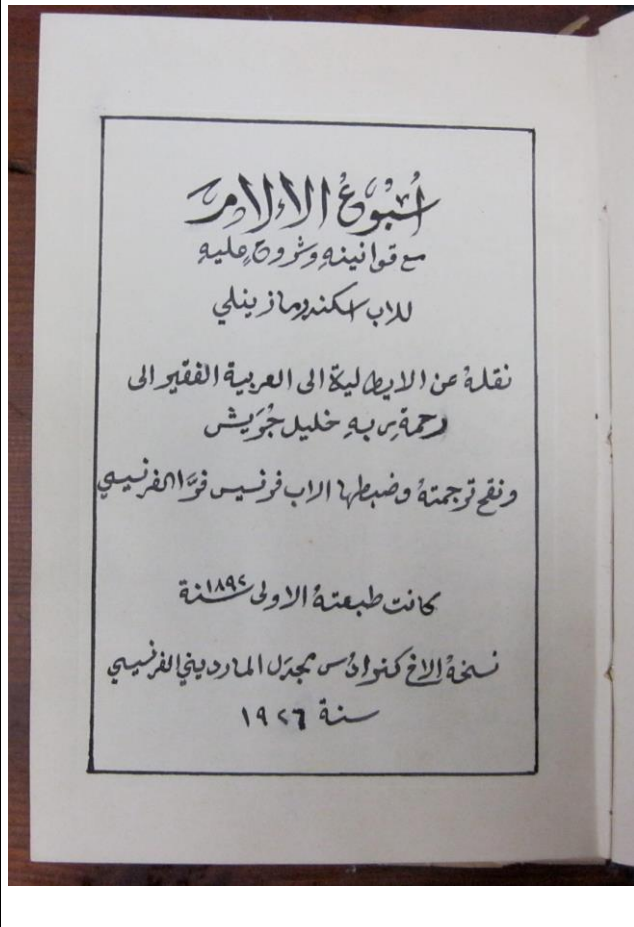 أُسْبُوعُ الالآمِ
مع قوانينهِ وشروحٍ عليهِ
للاب اسكندر مازينلي
نقلهُ عن الايطالية الى العربية الفقير الى
رحمة ربهِ خليل جُوَيش
ونقح ترجمتهُ وضبطها الاب فرنسيس الفرنسيسي
كانت طبعتهُ الاولى سنة ١٨٩٢
نسخهُ الاخ مجدل المارديني الفرنسيسي
سنة ١٩٢٦